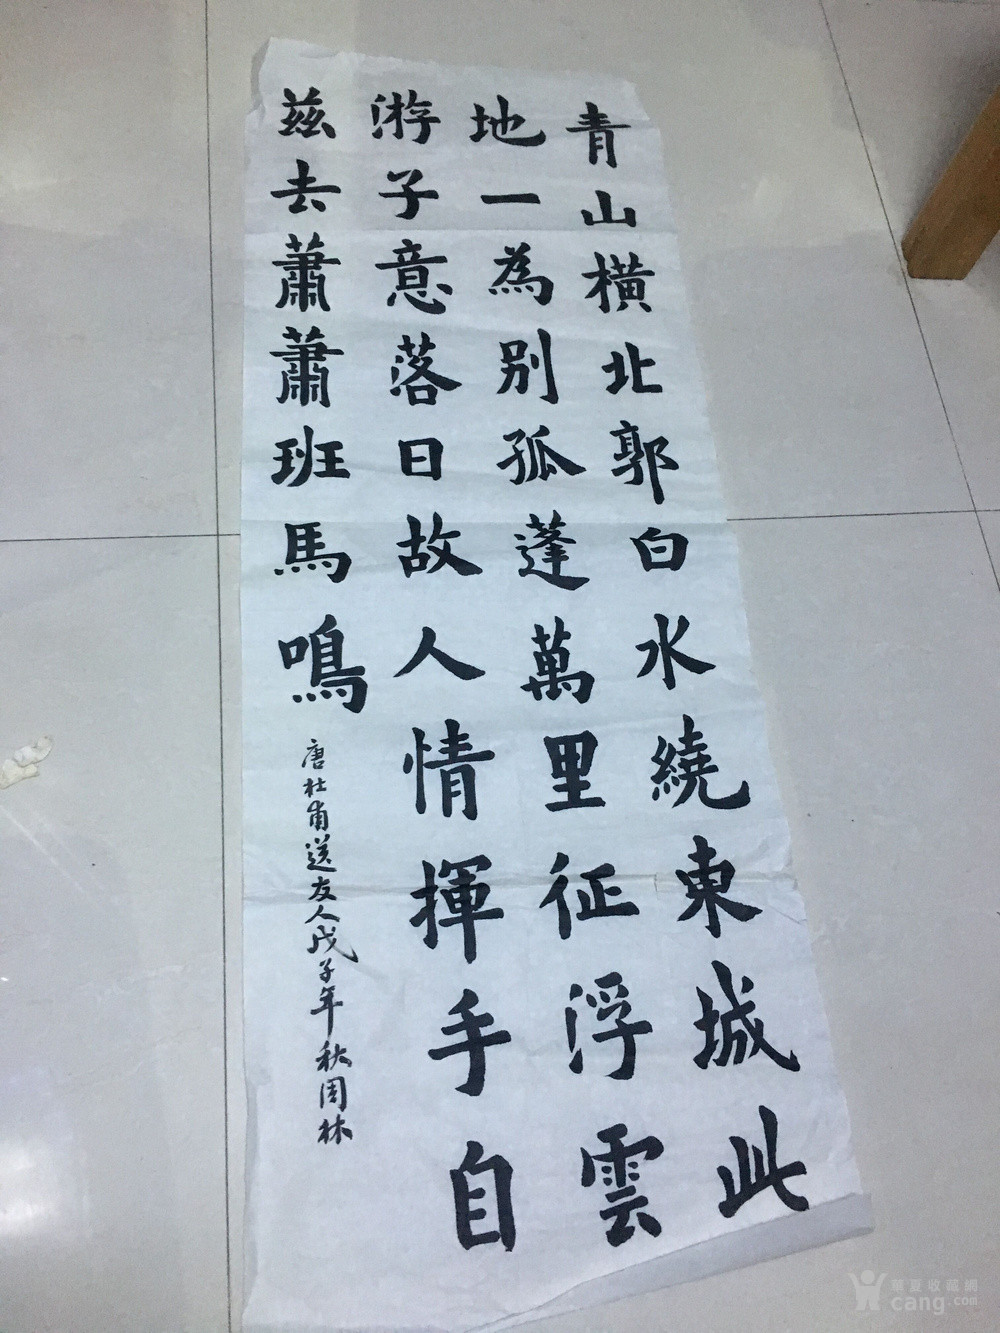 青山橫北郭白水繞東城此
地一為别孤蓬萬里征浮雲
游子意落日故人情揮手自
兹去蕭蕭班馬鳴
唐杜甫送友人戊子年秋周林
華夏收藏網
cang.com